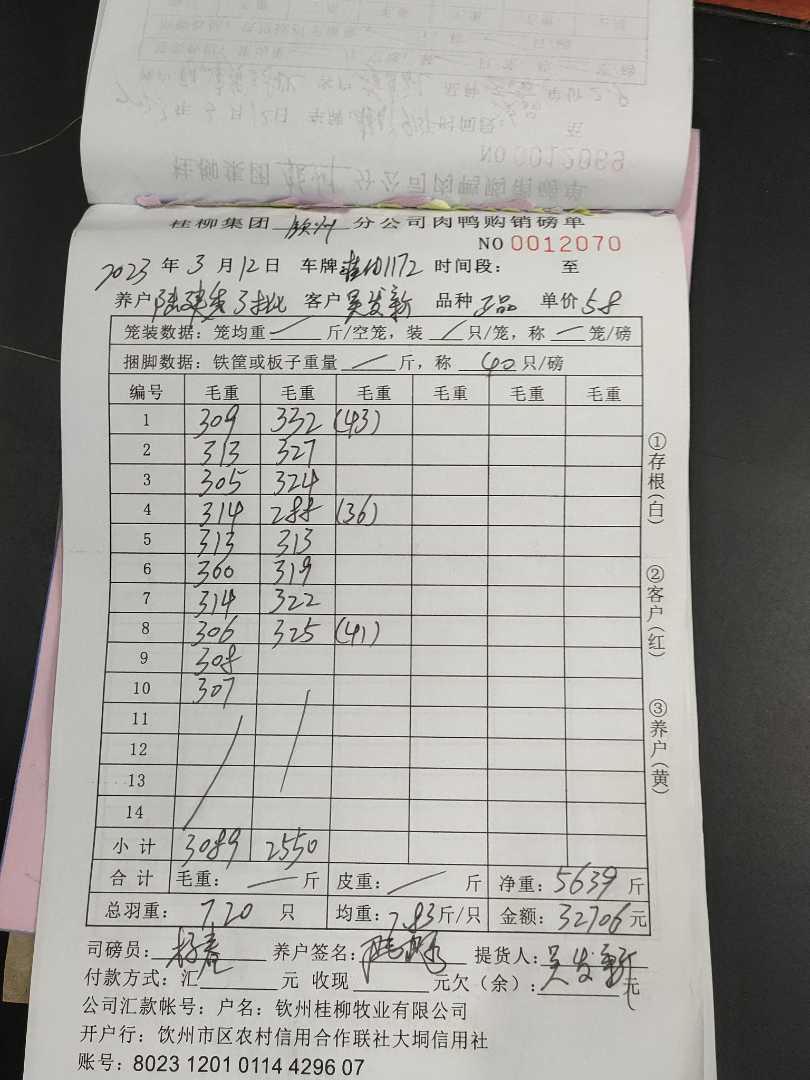 NO 0012069
桂柳集团 钦州 分公司肉鸭购销磅单
NO 0012070
2023 年 3 月 12 日 车牌 桂N01172 时间段： 至
养户 陆 3批 客户 吴发新 品种 正品 单价 5.8
笼装数据：笼均重 斤/空笼，装 只/笼，称 笼/磅
捆脚数据：铁筐或板子重量 斤，称 40 只/磅
编号 毛重 毛重 毛重 毛重 毛重 毛重
1 309 332 (43)
2 313 327
3 305 324
4 314 288 (36)
5 313 313
6 300 319
7 314 322
8 306 325 (41)
9 308
10 307
11
12
13
14
小计 3089 2550
合计 毛重： 斤 皮重： 斤 净重：5639 斤
总羽重： 720 只 均重：7.83 斤/只 金额：32706 元
司磅员： 养户签名： 提货人：吴发新
付款方式：汇 元 收现 元欠（余）： 元
公司汇款帐号：户名：钦州桂柳牧业有限公司
开户行：饮州市区农村信用合作联社大垌信用社
账号：8023 1201 0114 4296 07
①存根(白)
②客户(红)
③养户(黄)